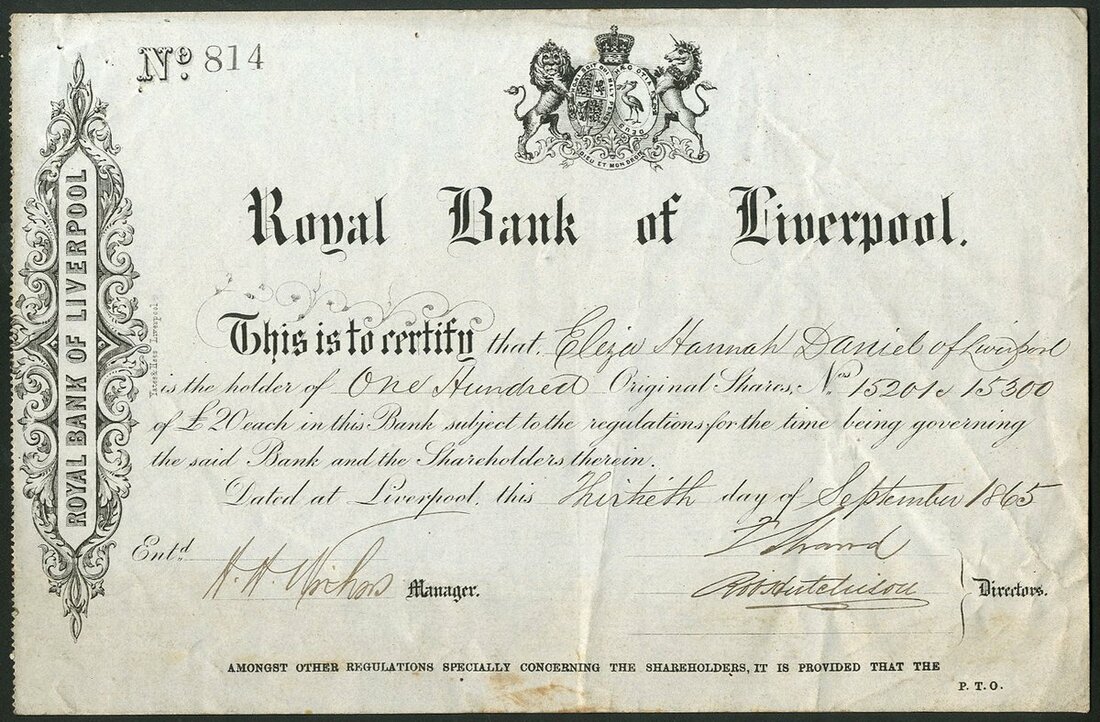 No. 814
DIEU ET MON DROIT
Royal Bank of Liverpool.
ROYAL BANK OF LIVERPOOL
This is to certify that Eliza Hannah Daniel of Liverpool
is the holder of One Hundred Original Shares, Nos 15201 15300
of £20 each in this Bank subject to the regulations for the time being governing
the said Bank and the Shareholders therein.
Dated at Liverpool, this Thirtieth day of September 1865
Entd
Manager.
Hutchison
Directors.
AMONGST OTHER REGULATIONS SPECIALLY CONCERNING THE SHAREHOLDERS, IT IS PROVIDED THAT THE
P. T. O.